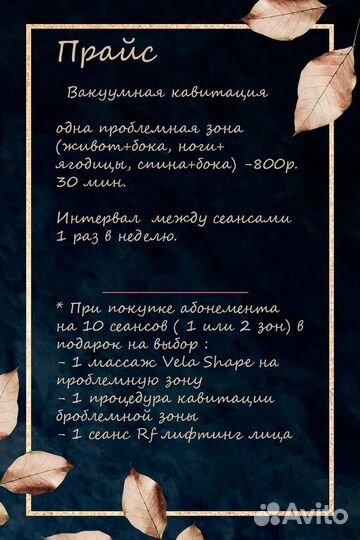 Прайс
Вакуумная кавитация
одна проблемная зона
(живот+бока, ноги+
ягодицы, спина+бока) -800р.
30 мин.
Интервал между сеансами
1 раз в неделю.
* При покупке абонемента
на 10 сеансов ( 1 или 2 зон) в
подарок на выбор :
- 1 массаж Vela Shape на
проблемную зону
- 1 процедура кавитации
броблемной зоны
- 1 сеанс Rf лифтинг лица
Avito